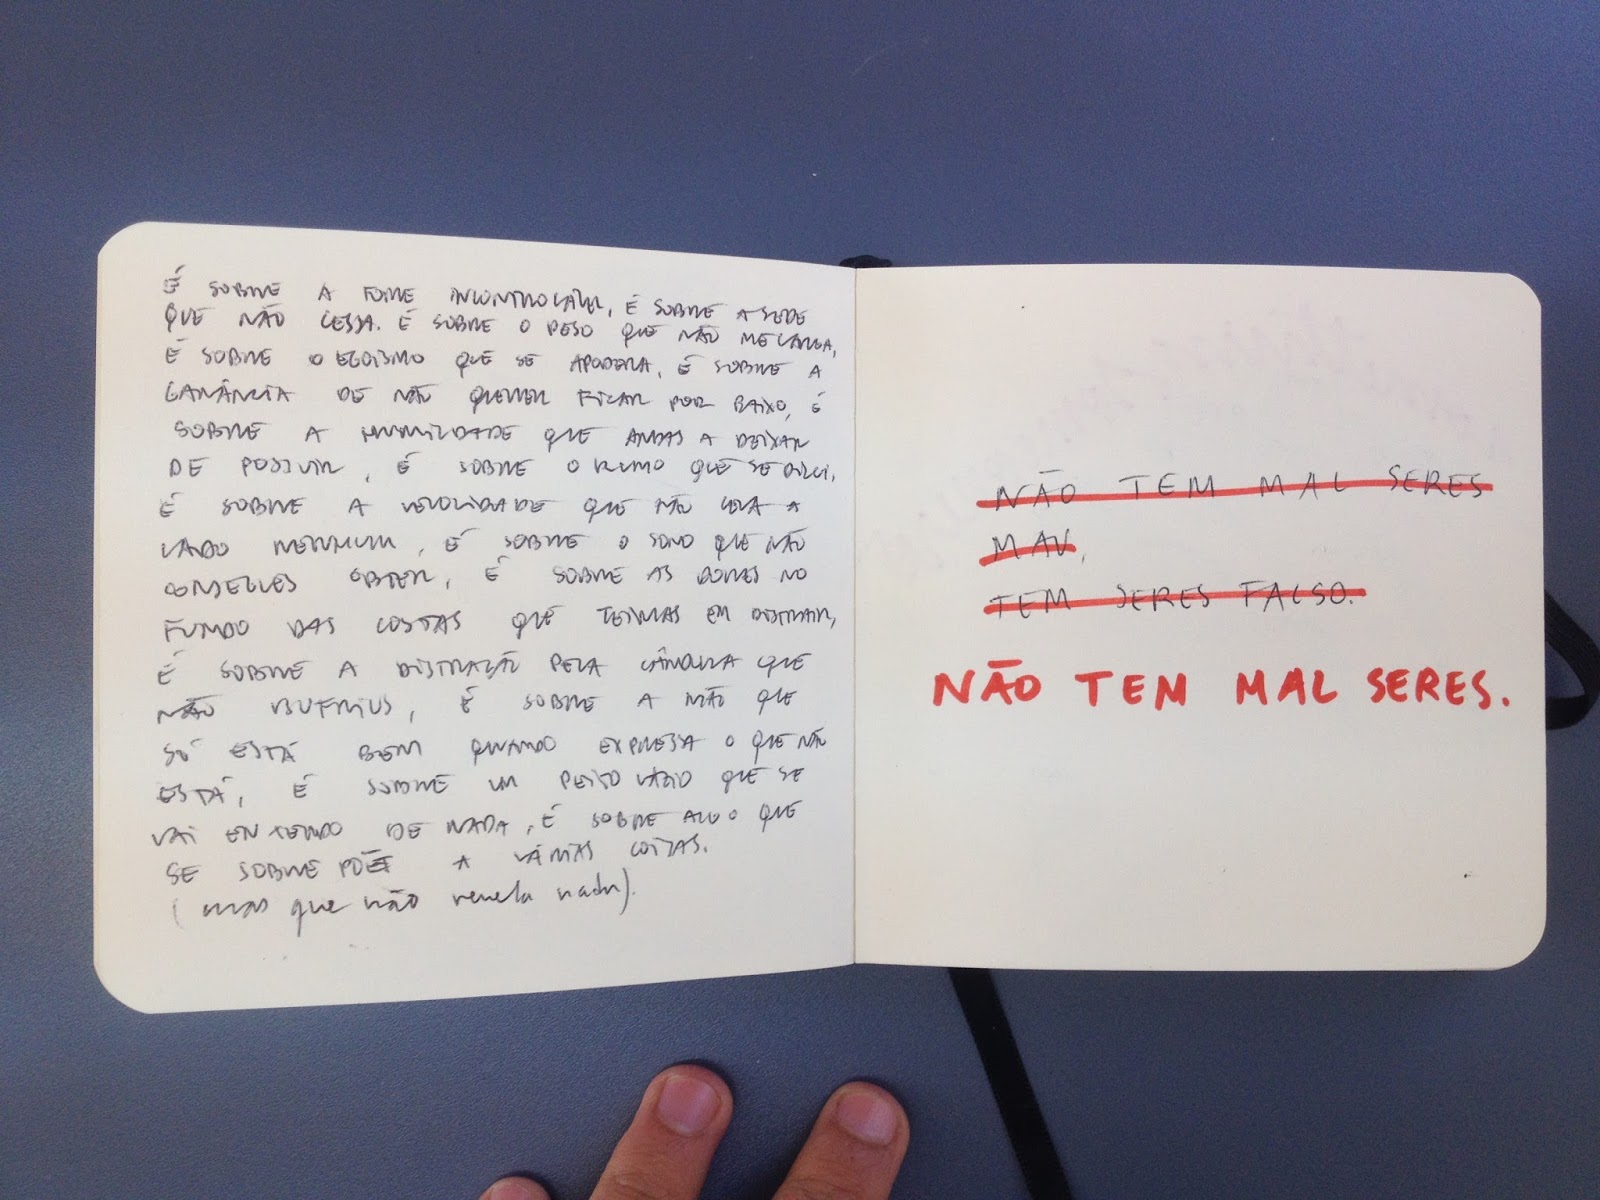 É SOBRE A FOME INCONTROLÁVEL, É SOBRE A SEDE
QUE NÃO CESSA. É SOBRE O PESO QUE NÃO ME CANSA,
É SOBRE O EGOÍSMO QUE SE APODERA, É SOBRE A
GANÂNCIA DE NÃO QUERER FICAR POR BAIXO, É
SOBRE A HUMILDADE QUE ANDAS A DEIXAR
DE POSSUIR, É SOBRE O RUMO QUE SE
É SOBRE A VELOCIDADE QUE NÃO LEVA A
LADO NENHUM, É SOBRE O SONO QUE NÃO
CONSEGUES OBTER, É SOBRE AS DORES NO
FUNDO DAS COSTAS QUE TEIMAS EM DISTRAIR,
É SOBRE A DISTRAÇÃO PELA QUE
NÃO, É SOBRE A MÃO QUE
SÓ ESTÁ BEM QUANDO EXPRESSA O QUE NÃO
ESTÁ, É SOBRE UM PEITO VAZIO QUE SE
VAI ENCHENDO DE NADA, É SOBRE ALGO QUE
SE SOBREPÕE A VÁRIAS COISAS.
(mas que não revela nada).
NÃO TEM MAL SERES
MAU,
TEM SERES FALSO.
NÃO TEM MAL SERES.